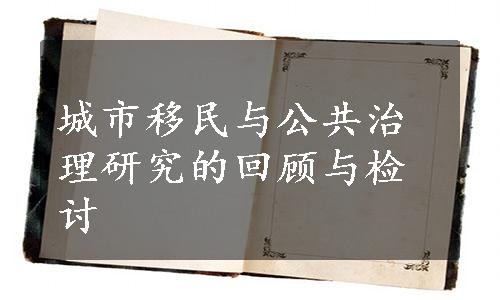 城市移民与公共治
理研究的回顾与检
讨